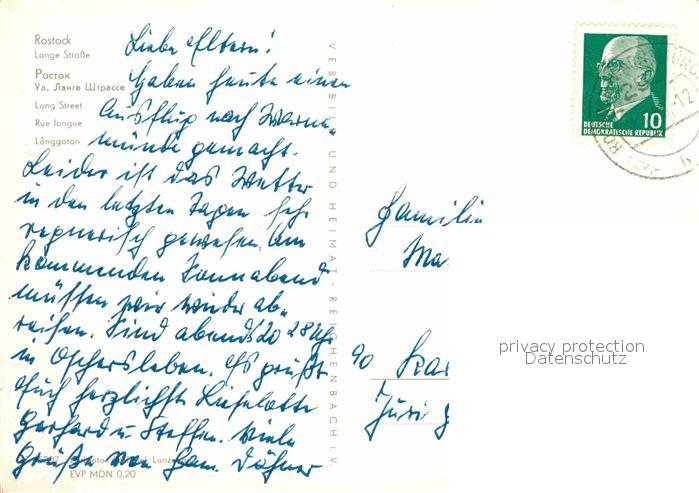 Rostock
Lange Straße
Росток
Ул. Ланге Штрассе
Long Street
Rue longue
Långgatan
Liebe Eltern!
Haben heute einen
Ausflug nach Warne-
münde gemacht.
Leider ist das Wetter
in den letzten Tagen sehr
regnerisch gewesen. Am
kommenden Sonnabend
müssen wir wieder ab-
reisen. Sind abends 20 28 Uhr
in Oschersleben. Es grüßt
Euch herzlichst Liselotte
Gerhard u. Steffen. Viele
Grüße von Fam. Döhner
EVP MDN 0,20
VEB BILD UND HEIMAT · REICHENBACH i. V.
10
DEUTSCHE
DEMOKRATISCHE REPUBLIK
Familie
Ma
Kar
privacy protection
Datenschutz